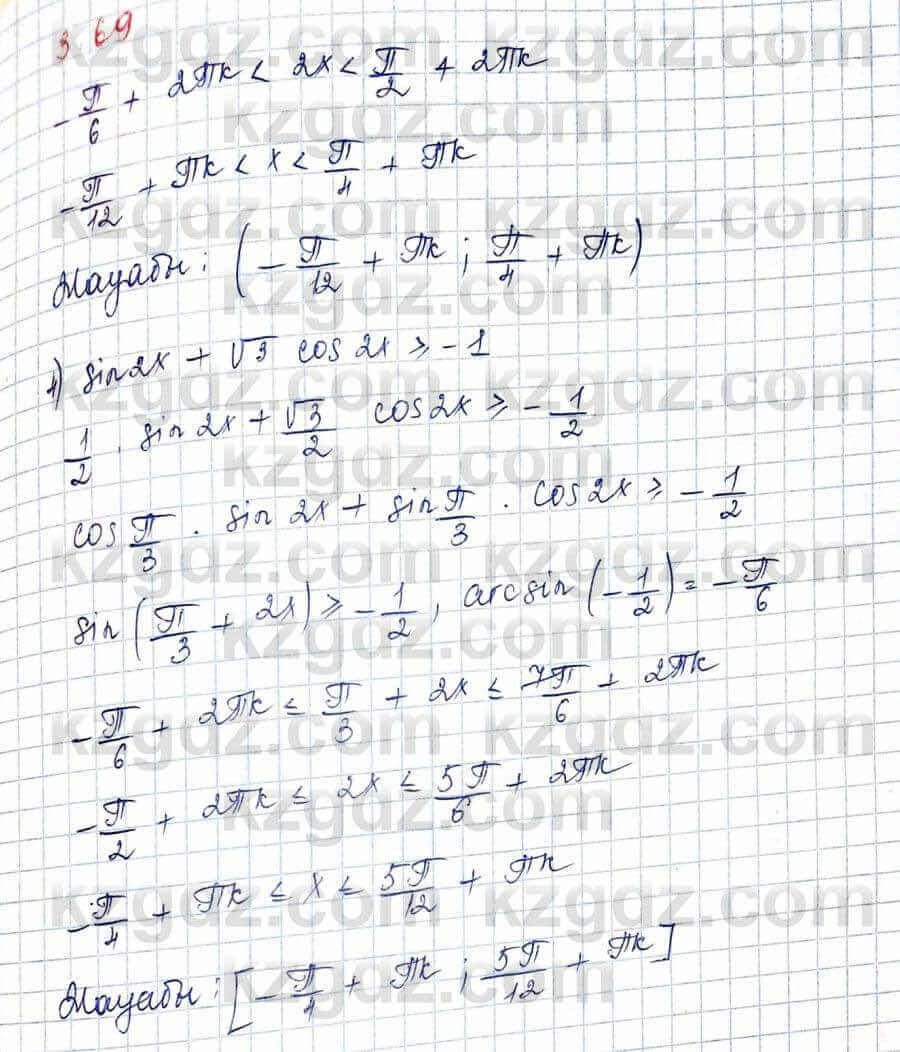 3.69
-π/6 + 2πk < 2x < π/2 + 2πk
-π/12 + πk < x < π/4 + πk
Жауабы: (-π/12 + πk; π/4 + πk)
4) sin2x + √3 cos2x ≥ -1
1/2 · sin2x + √3/2 cos2x ≥ -1/2
cos π/3 · sin2x + sin π/3 · cos2x ≥ -1/2
sin(π/3 + 2x) ≥ -1/2, arcsin(-1/2) = -π/6
-π/6 + 2πk ≤ π/3 + 2x ≤ 7π/6 + 2πk
-π/2 + 2πk ≤ 2x ≤ 5π/6 + 2πk
-π/4 + πk ≤ x ≤ 5π/12 + πk
Жауабы: [-π/4 + πk; 5π/12 + πk]
kzgdz.com